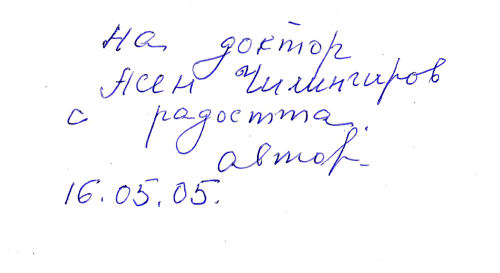 на доктор
Асен Чилингиров
с радостта
автор.
16.05.05.